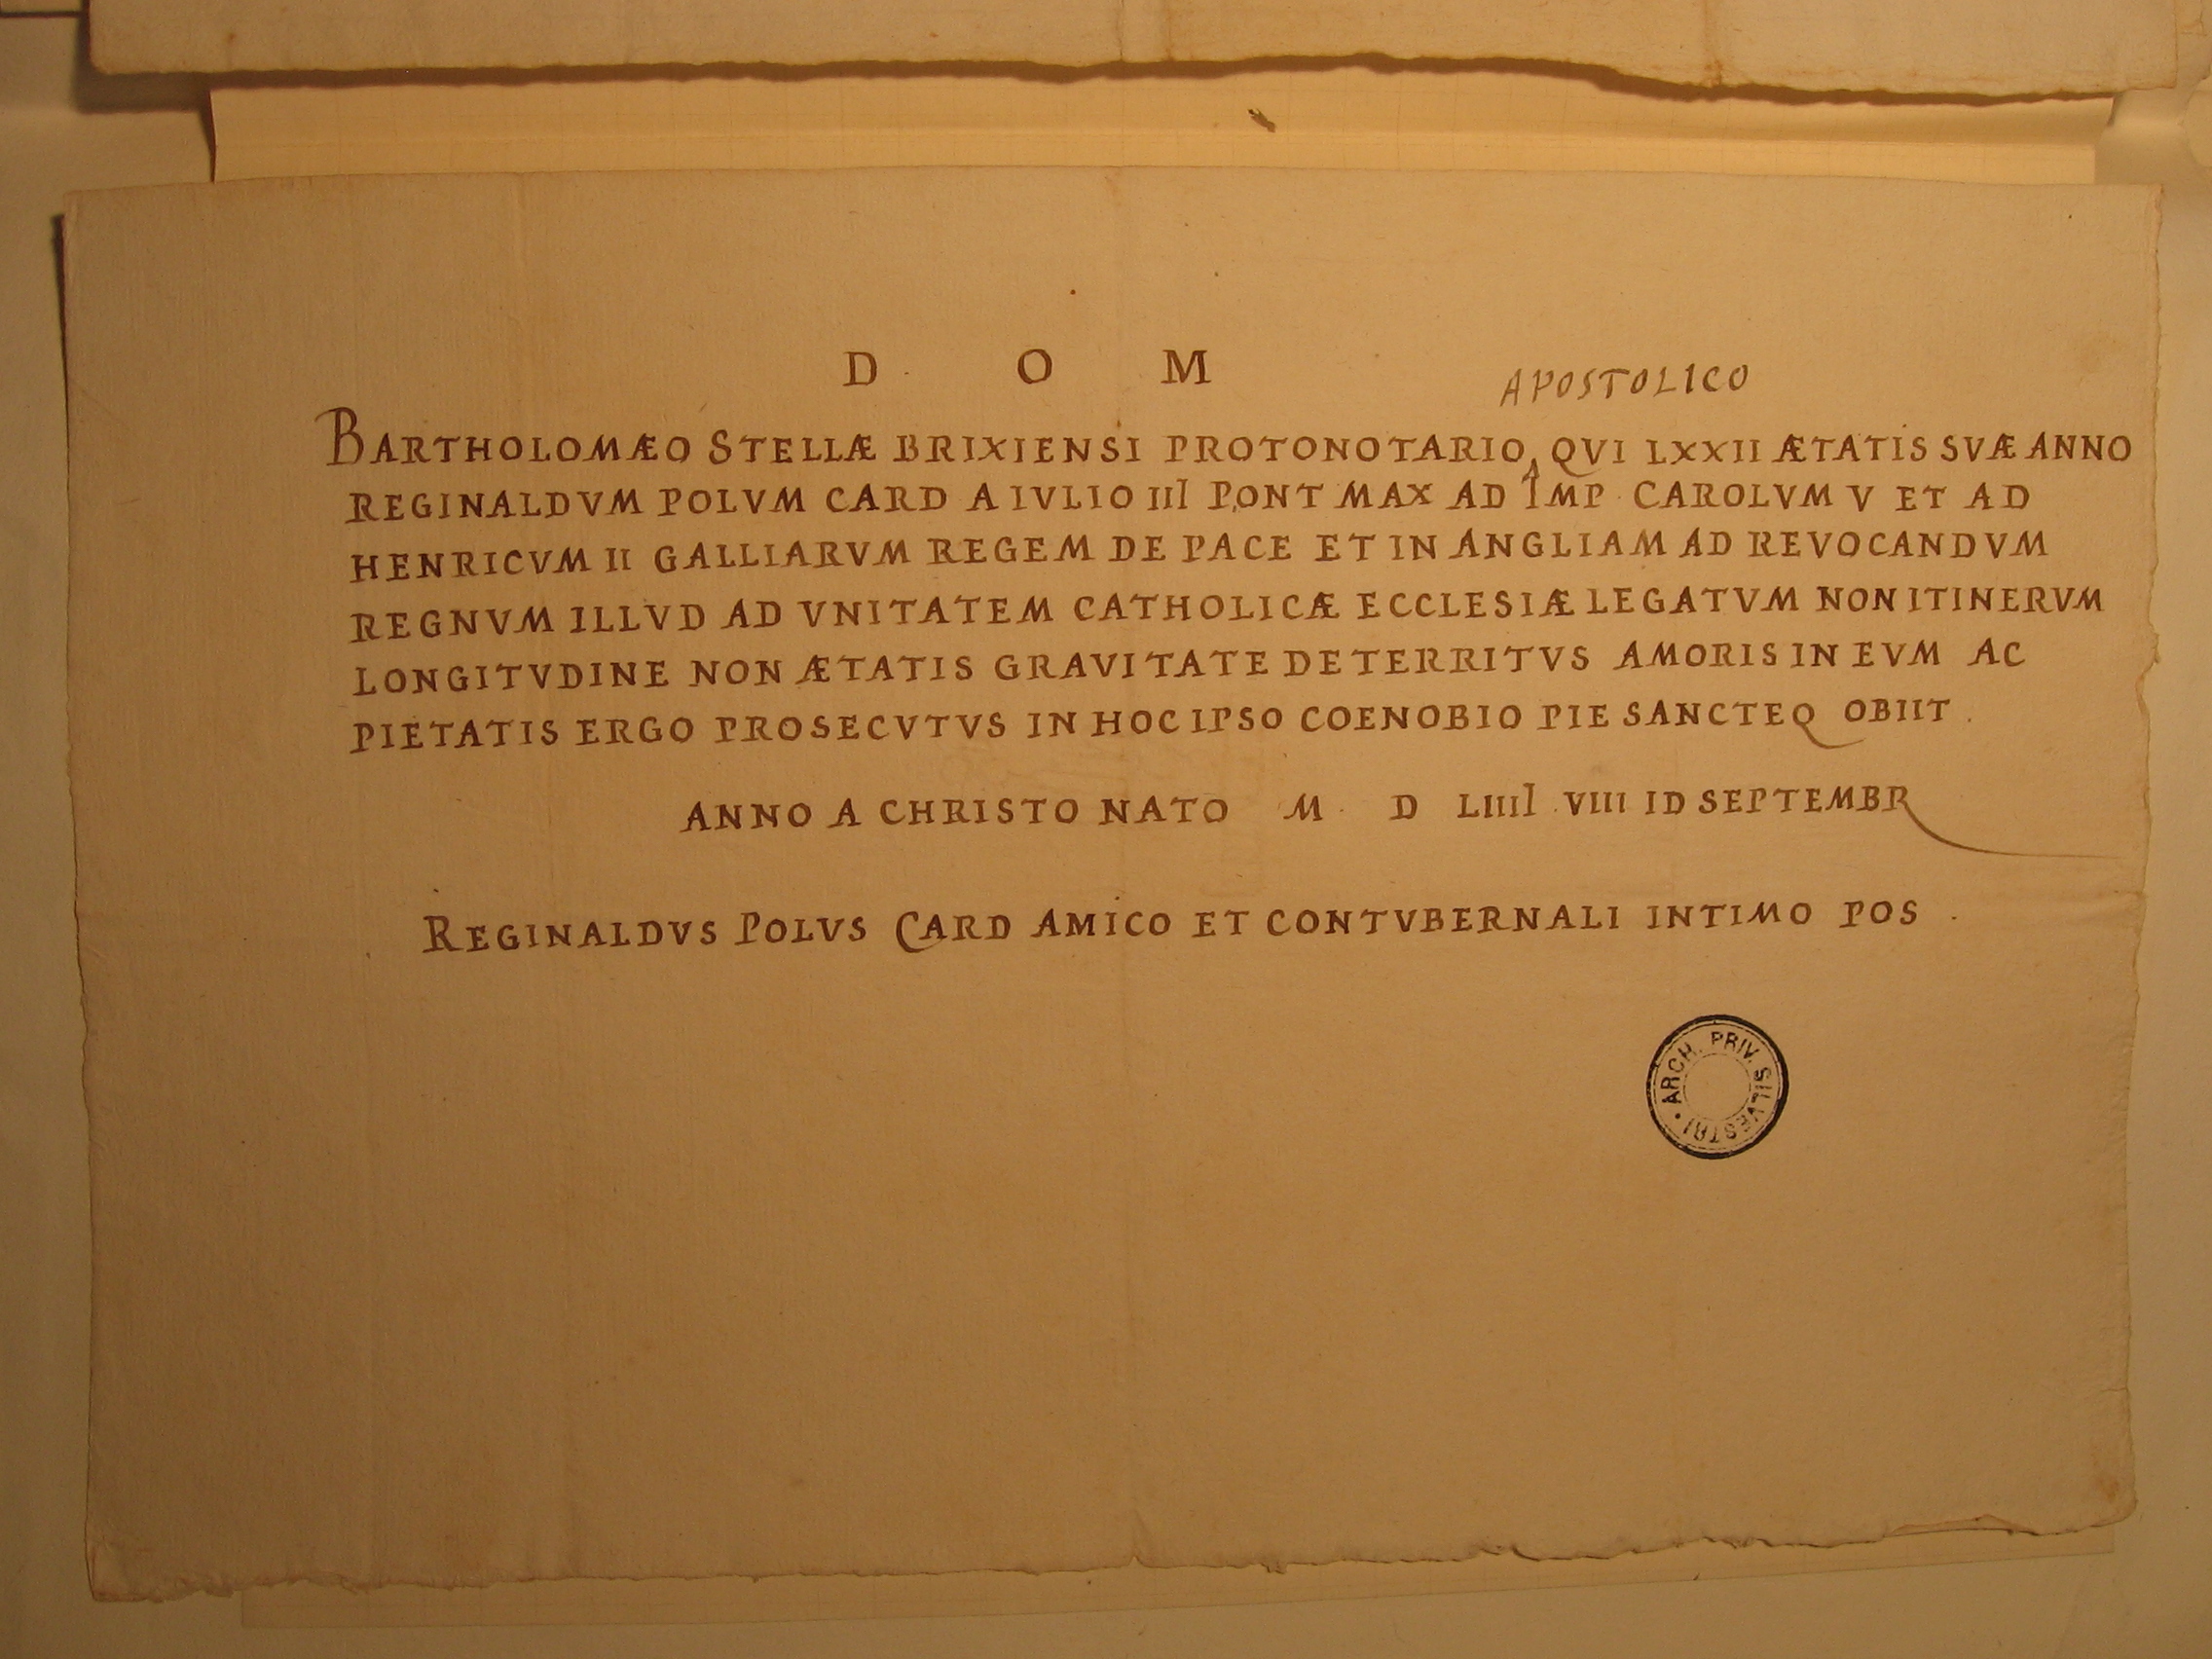 D. O M
APOSTOLICO
BARTHOLOMÆO STELLÆ BRIXIENSI PROTONOTARIO QVI LXXII ÆTATIS SVÆ ANNO
REGINALDVM POLVM CARD A IVLIO III PONT MAX AD IMP CAROLVM V ET AD
HENRICVM II GALLIARVM REGEM DE PACE ET IN ANGLIAM AD REVOCANDVM
REGNVM ILLVD AD VNITATEM CATHOLICÆ ECCLESIÆ LEGATVM NON ITINERVM
LONGITVDINE NON ÆTATIS GRAVITATE DETERRITVS AMORIS IN EVM AC
PIETATIS ERGO PROSECVTVS IN HOC IPSO COENOBIO PIE SANCTEQ OBIIT.
ANNO A CHRISTO NATO M. D LIIII VIII ID SEPTEMBR
REGINALDVS POLVS CARD AMICO ET CONTVBERNALI INTIMO POS.
ARCH. PRIV. SILVESTRI •